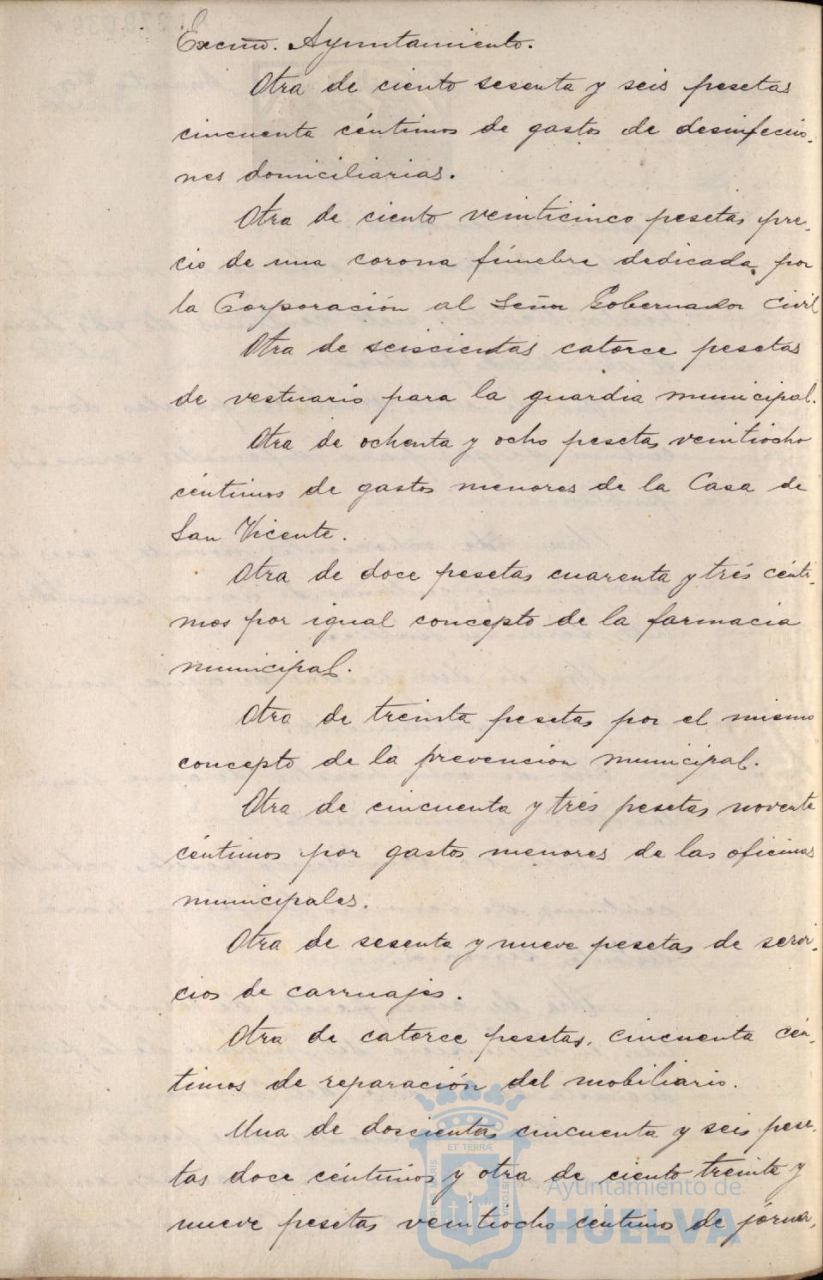 Excmo. Ayuntamiento.
Otra de ciento sesenta y seis pesetas
cincuenta céntimos de gastos de desinfeccio-
nes domiciliarias.
Otra de ciento veinticinco pesetas pre-
cio de una corona fúnebre dedicada por
la Corporación al Señor Gobernador Civil
Otra de seiscientas catorce pesetas
de vestuario para la guardia municipal.
Otra de ochenta y ocho pesetas veintiocho
céntimos de gastos menores de la Casa de
San Vicente.
Otra de doce pesetas cuarenta y trés cénti-
mos por igual concepto de la farmacia
municipal.
Otra de treinta pesetas por el mismo
concepto de la prevención municipal.
Otra de cincuenta y trés pesetas noventa
céntimos por gastos menores de las oficinas
municipales.
Otra de sesenta y nueve pesetas de servi-
cios de carruajes.
Otra de catorce pesetas, cincuenta cén-
timos de reparación del mobiliario.
Una de doscientas cincuenta y seis pese-
tas doce céntimos y otra de ciento treinta y
nueve pesetas veintiocho céntimos de jorna-
ET TERRÆ
Ayuntamiento de
HUELVA